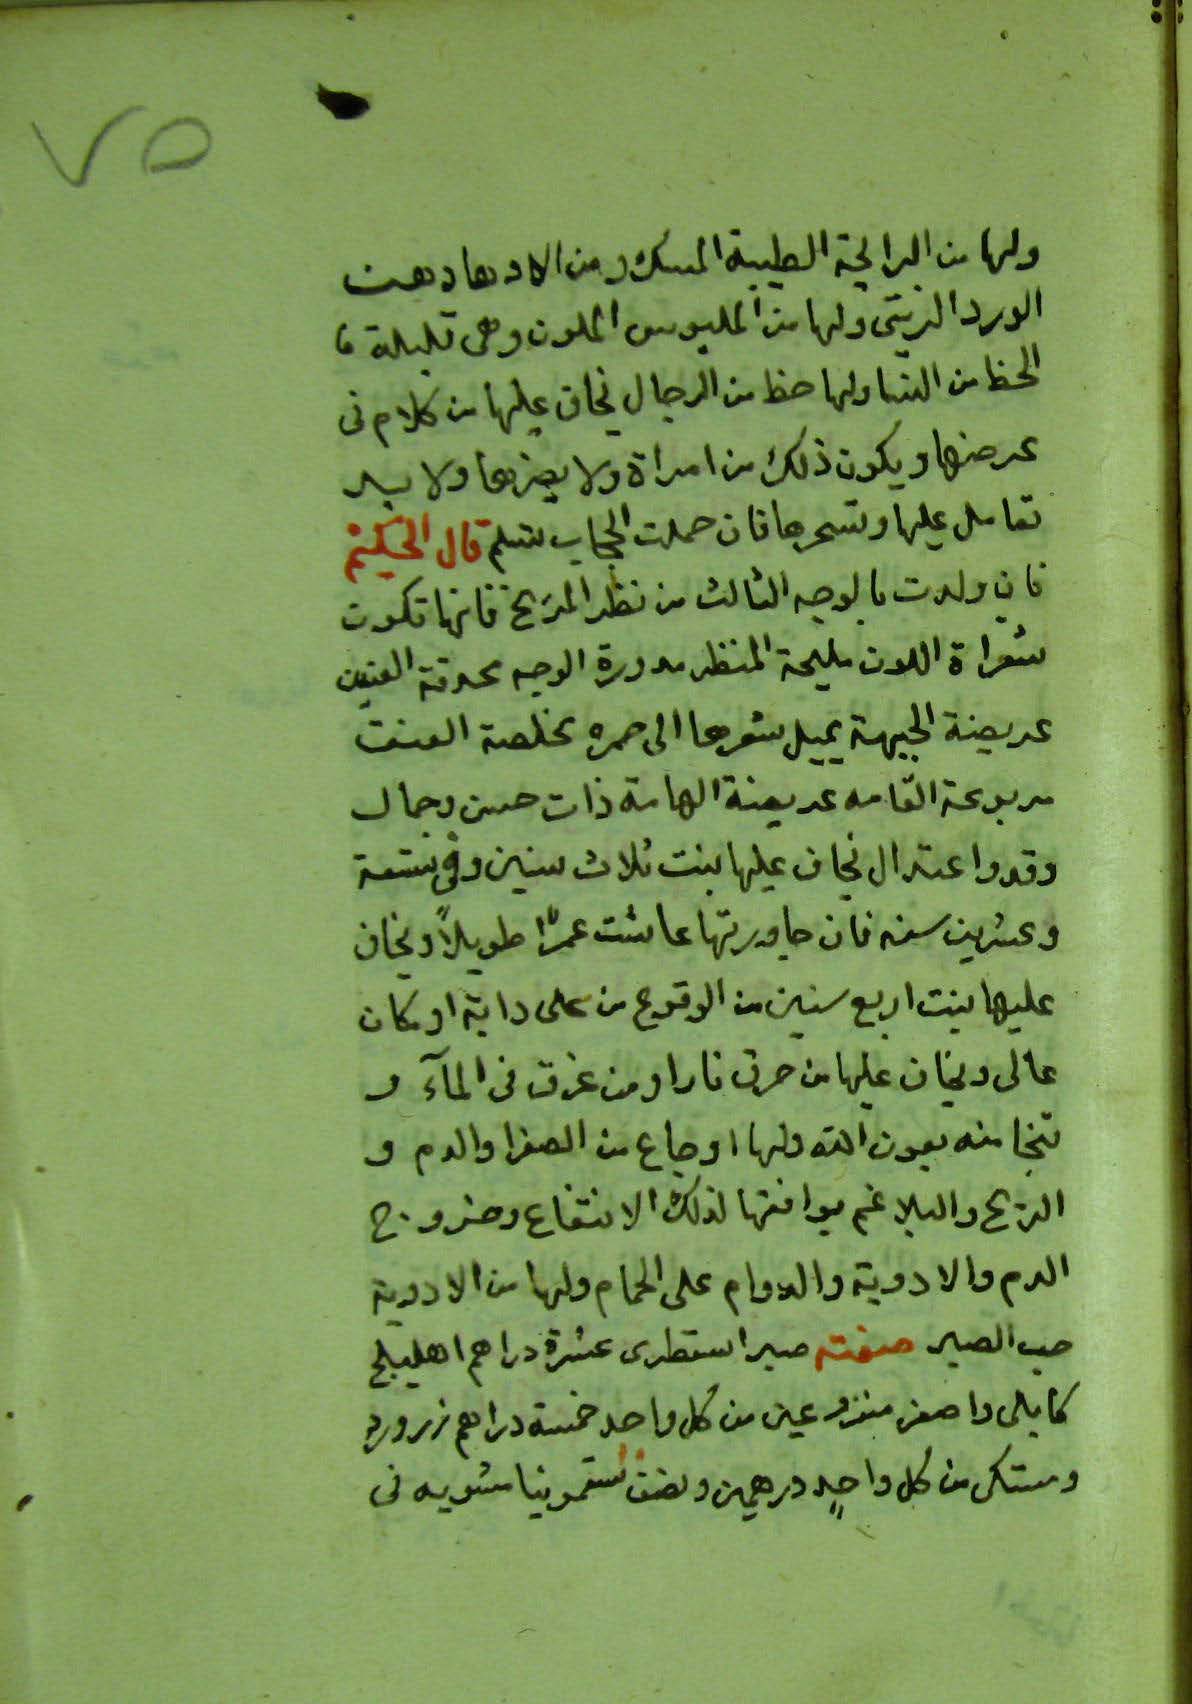 ٧٥
ولها من الرايحة الطيبة المسك ومن الادهان دهن
الورد الزيتى ولها من الملبوس الملون وهى قليلة
الحظ من النسا ولها حظ من الرجال يخاف عليها من كلام فى
عرضها ويكون ذلك من امراة ولا يضرها ولا
تعامل عليها وتسحرها فان حملت الحجاب تسلم قال الحكيم
فان ولدت بالوجه الثالث من نظر المريخ فانها تكون
شعراة اللون مليحة المنظر مدورة الوجه محدقة العينين
عريضة الجبهة يميل شعرها الى حمره مخلصة العنق
مربوعة القامه عريضة الهامة ذات حسن وجمال
وقد واعتدال يخاف عليها بنت ثلاث سنين وفى تسعة
وعشرين سنه فان جاورتها عاشت عمرًا طويلاً ويخاف
عليها بنت اربع سنين من الوقوع من على دابة او مكان
عالى ويخاف عليها من حرق نار او من غرق فى المآء و
تنجا منه بعون الله ولها اوجاع من الصفرا والدم و
الريح والبلاغم يوافقها لذلك الانتفاع وخروج
الدم والادوية والدوام على الحمام ولها من الادوية
حب الصبر صفته صبر اسقطرى عشرة دراهم اهليلج
كابلى واصفر منزوعين من كل واحد خمسة دراهم زرورد
ومستكى من كل واحدٍ درهمين ونصف سقمونيا مشويه فى